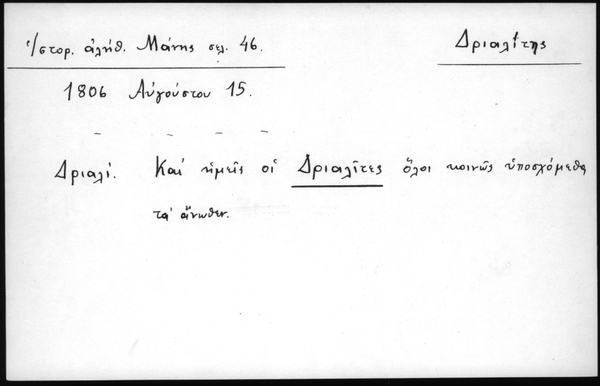 Ἱστορ. ἀλήθ. Μάνης σελ. 46.
Δριαλίτης
1806 Αὐγούστου 15.
Δριαλί. Καί ἡμεῖς οἱ Δριαλῖτες ὅλοι κοινῶς ὑποσχόμεθα
τά ἄνωθεν.